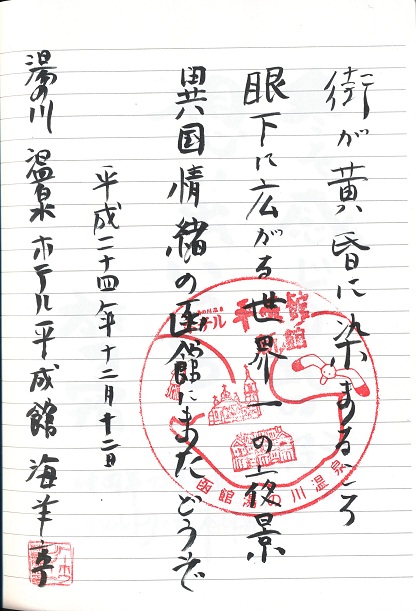 街が黄昏に染まるころ
眼下に広がる世界一の夜景
異国情緒の函館にまたどうぞ
平成二十四年十二月十二日
湯の川温泉ホテル平成館海羊亭
函館湯の川温泉